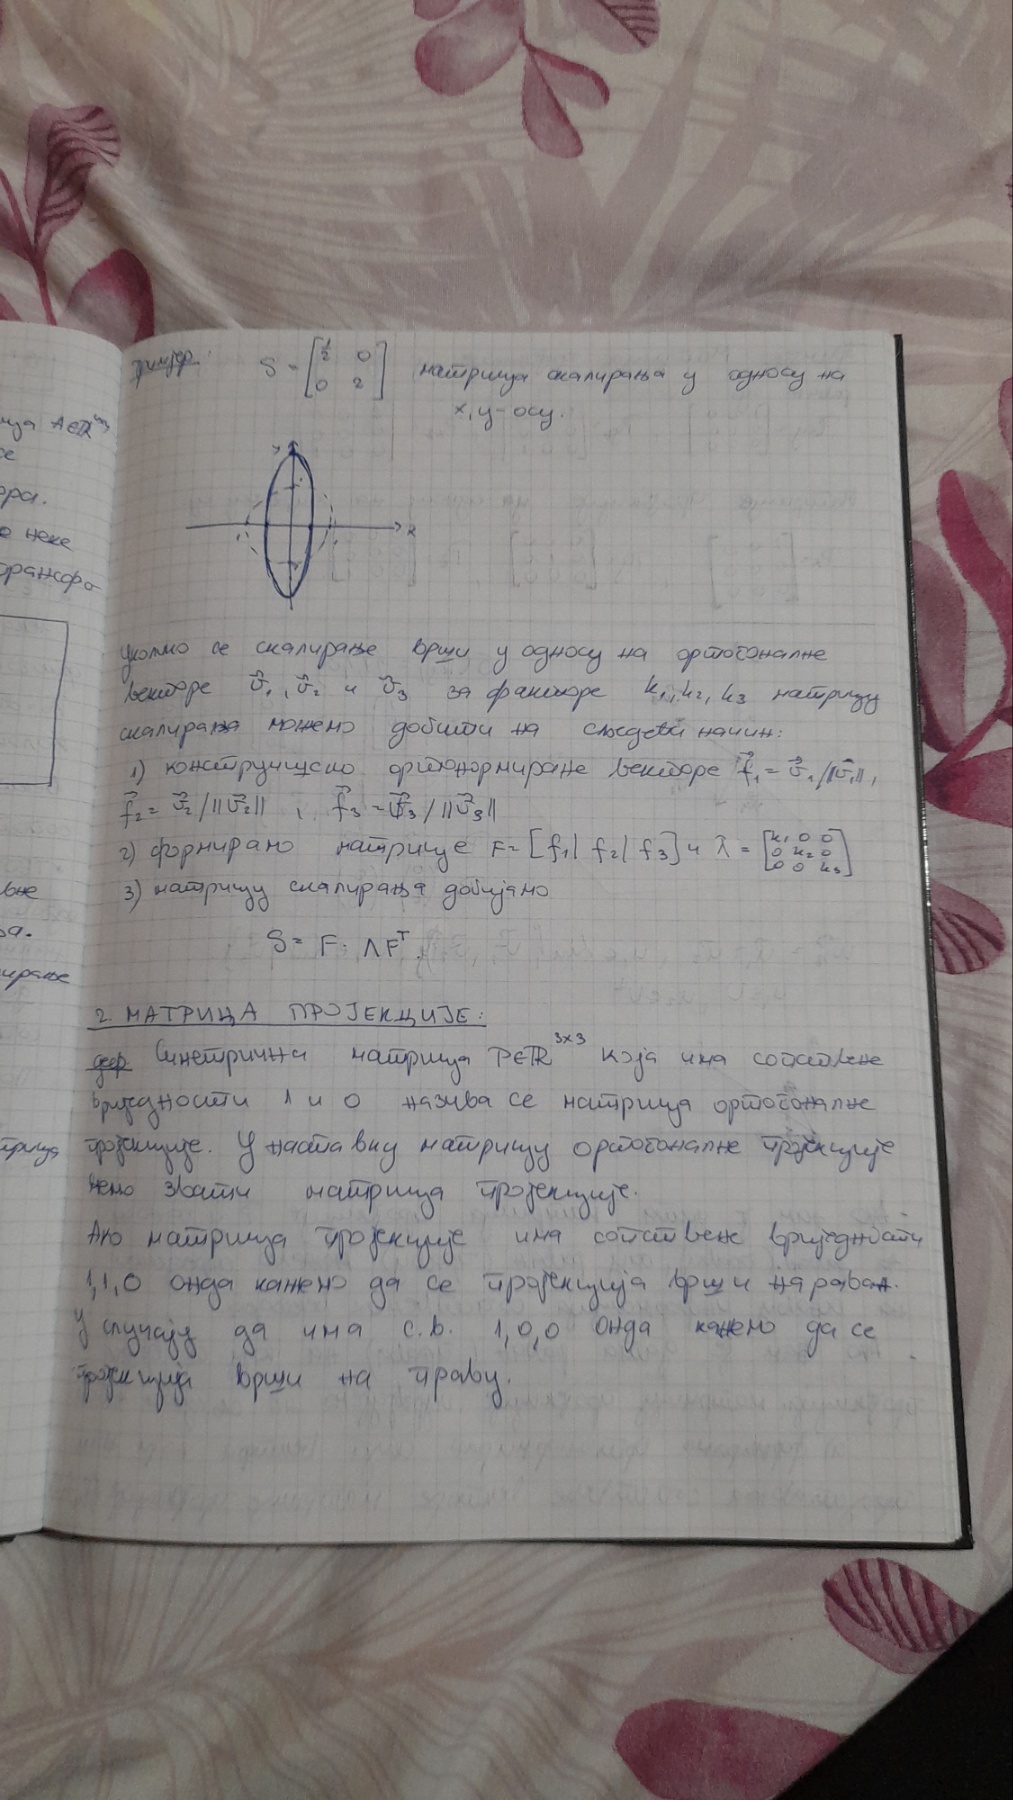 примјер:
S = [1/2 0; 0 2] матрица скалирања у односу на
x, y-осу.
y
x
Уколико се скалирање врши у односу на ортогоналне
векторе v⃗₁, v⃗₂ и v⃗₃ за факторе k₁, k₂, k₃ матрицу
скалирања можемо добити на сљедећи начин:
1) конструишемо ортонормиране векторе f⃗₁ = v⃗₁/||v⃗₁||,
f⃗₂ = v⃗₂/||v⃗₂||, f⃗₃ = v⃗₃/||v⃗₃||
2) формирамо матрице F = [f₁| f₂| f₃] и Λ = [k₁ 0 0; 0 k₂ 0; 0 0 k₃]
3) матрицу скалирања добијамо
S = F · Λ Fᵀ.
2. МАТРИЦА ПРОЈЕКЦИЈЕ:
деф. Симетрична матрица P∈ℝ³ˣ³ која има сопствене
вриједности 1 и 0 назива се матрица ортогоналне
пројекције. У наставку матрицу ортогоналне пројекције
ћемо звати матрица пројекције.
Ако матрица пројекције има сопствене вриједности
1,1,0 онда кажемо да се пројекција врши на раван.
У случају да има с.в. 1,0,0 онда кажемо да се
пројекција врши на праву.